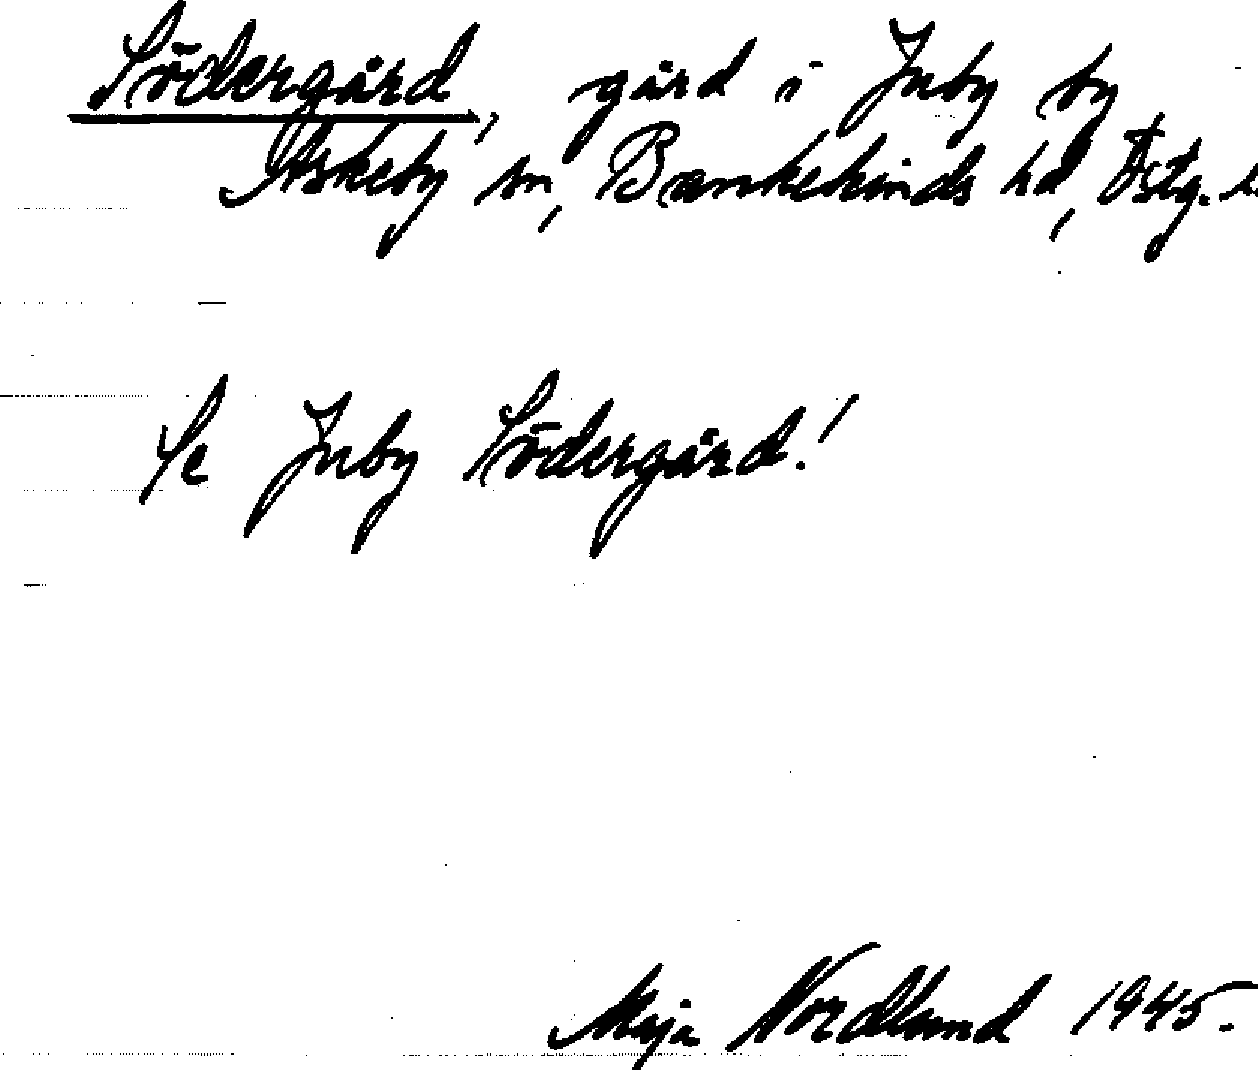 Södergård, gård i Juby by
Askeby sn, Bankekinds hd, Östg. l.
Se Juby Södergård!
Maja Nordlund 1945.